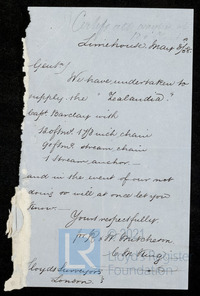 Limehouse May 5/58
Gent.n
We have undertaken to
supply the "Zealandia"
Capt Barclay with
1 7/8 inch chain
90 fms stream chain
1 Stream anchor
and in the event of our not
doing so will at once let you
know
Yours respectfully
C M King
Lloyds Surveyors
London
© 2021
Lloyd's Register
Foundation